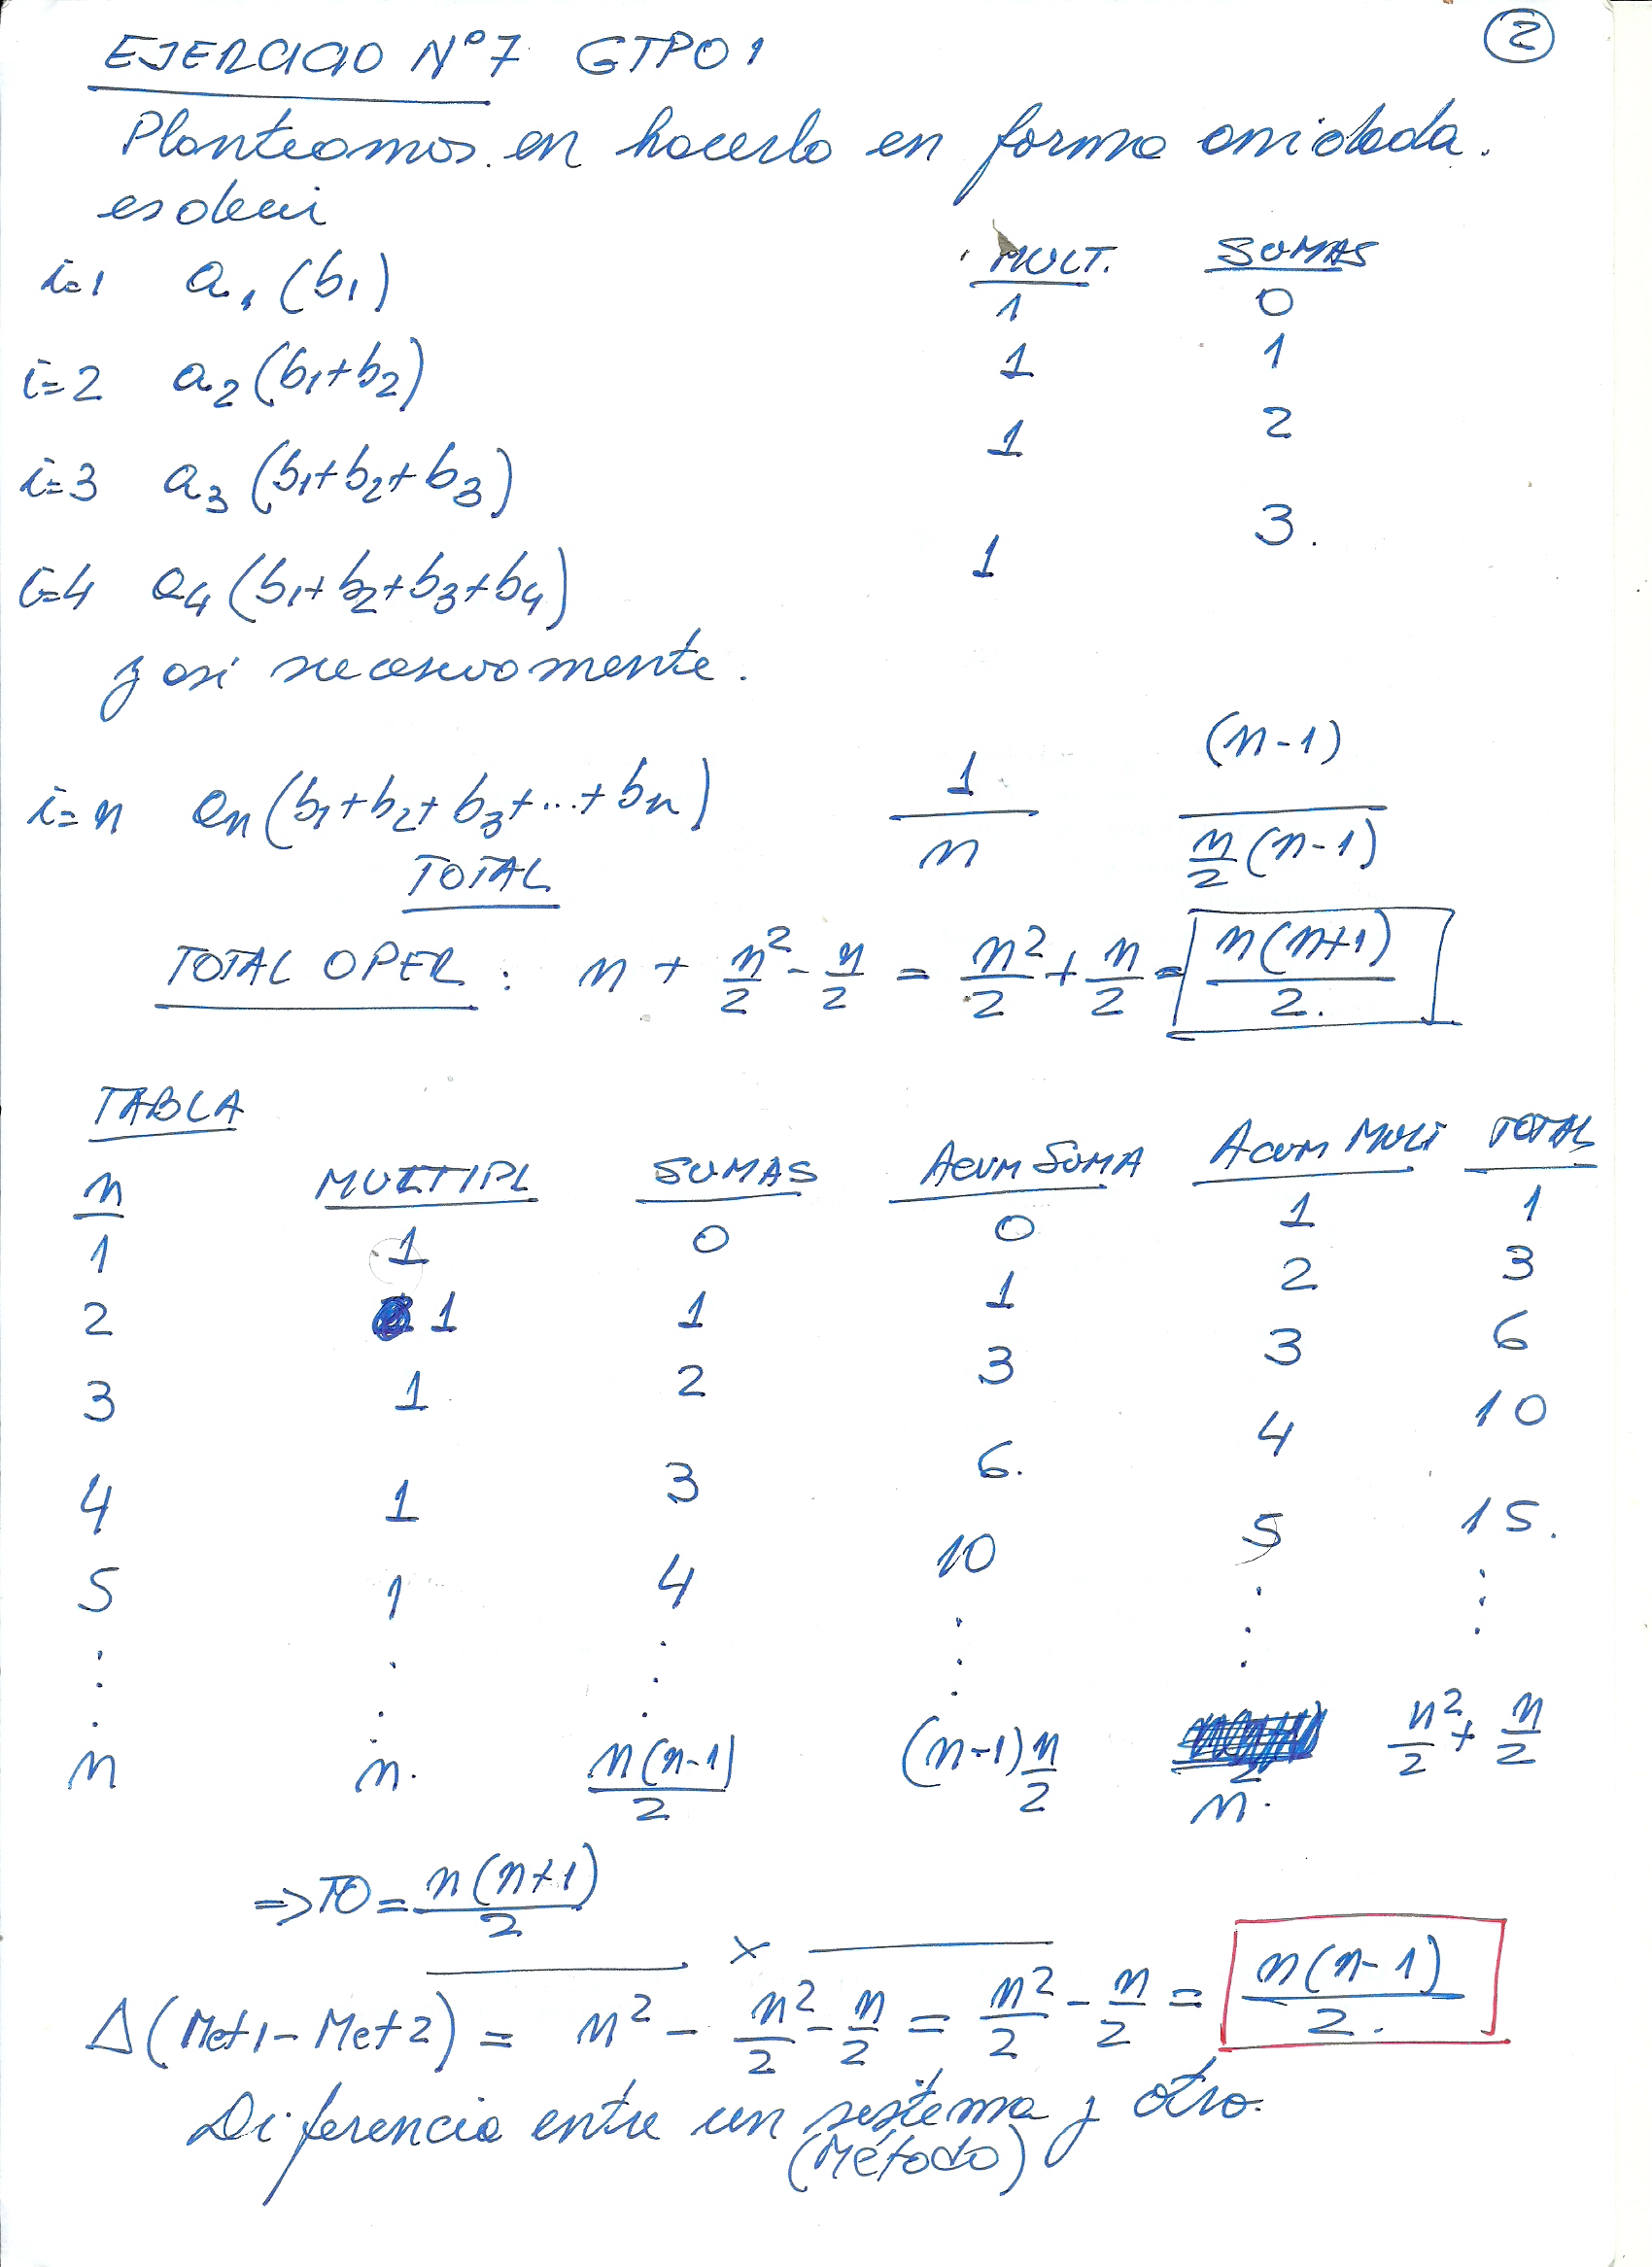 EJERCICIO Nº7 GTP01 ②
Planteamos en hacerlo en forma anidada.
es decir
MULT. SUMAS
i=1 a₁(b₁) 1 0
i=2 a₂(b₁+b₂) 1 1
i=3 a₃(b₁+b₂+b₃) 1 2
i=4 a₄(b₁+b₂+b₃+b₄) 1 3.
y asi sucesivamente.
i=n aₙ(b₁+b₂+b₃+...+bₙ) 1 (n-1)
TOTAL n n/2 (n-1)
TOTAL OPER : n + n²/2 - n/2 = n²/2 + n/2 = n(n+1)/2.
TABLA
n MULTIPL SUMAS ACUM SUMA ACUM MULT TOTAL
1 1 0 0 1 1
2 1 1 1 2 3
3 1 2 3 3 6
4 1 3 6. 4 10
5 1 4 10 5 15.
⋮ ⋮ ⋮ ⋮ ⋮ ⋮
n n. n(n-1)/2 (n-1)n/2 n. n²/2 + n/2
=> TO = n(n+1)/2
x
Δ(Met1-Met2) = n² - n²/2 - n/2 = n²/2 - n/2 = n(n-1)/2.
Diferencia entre un sistema y otro.
(Método)